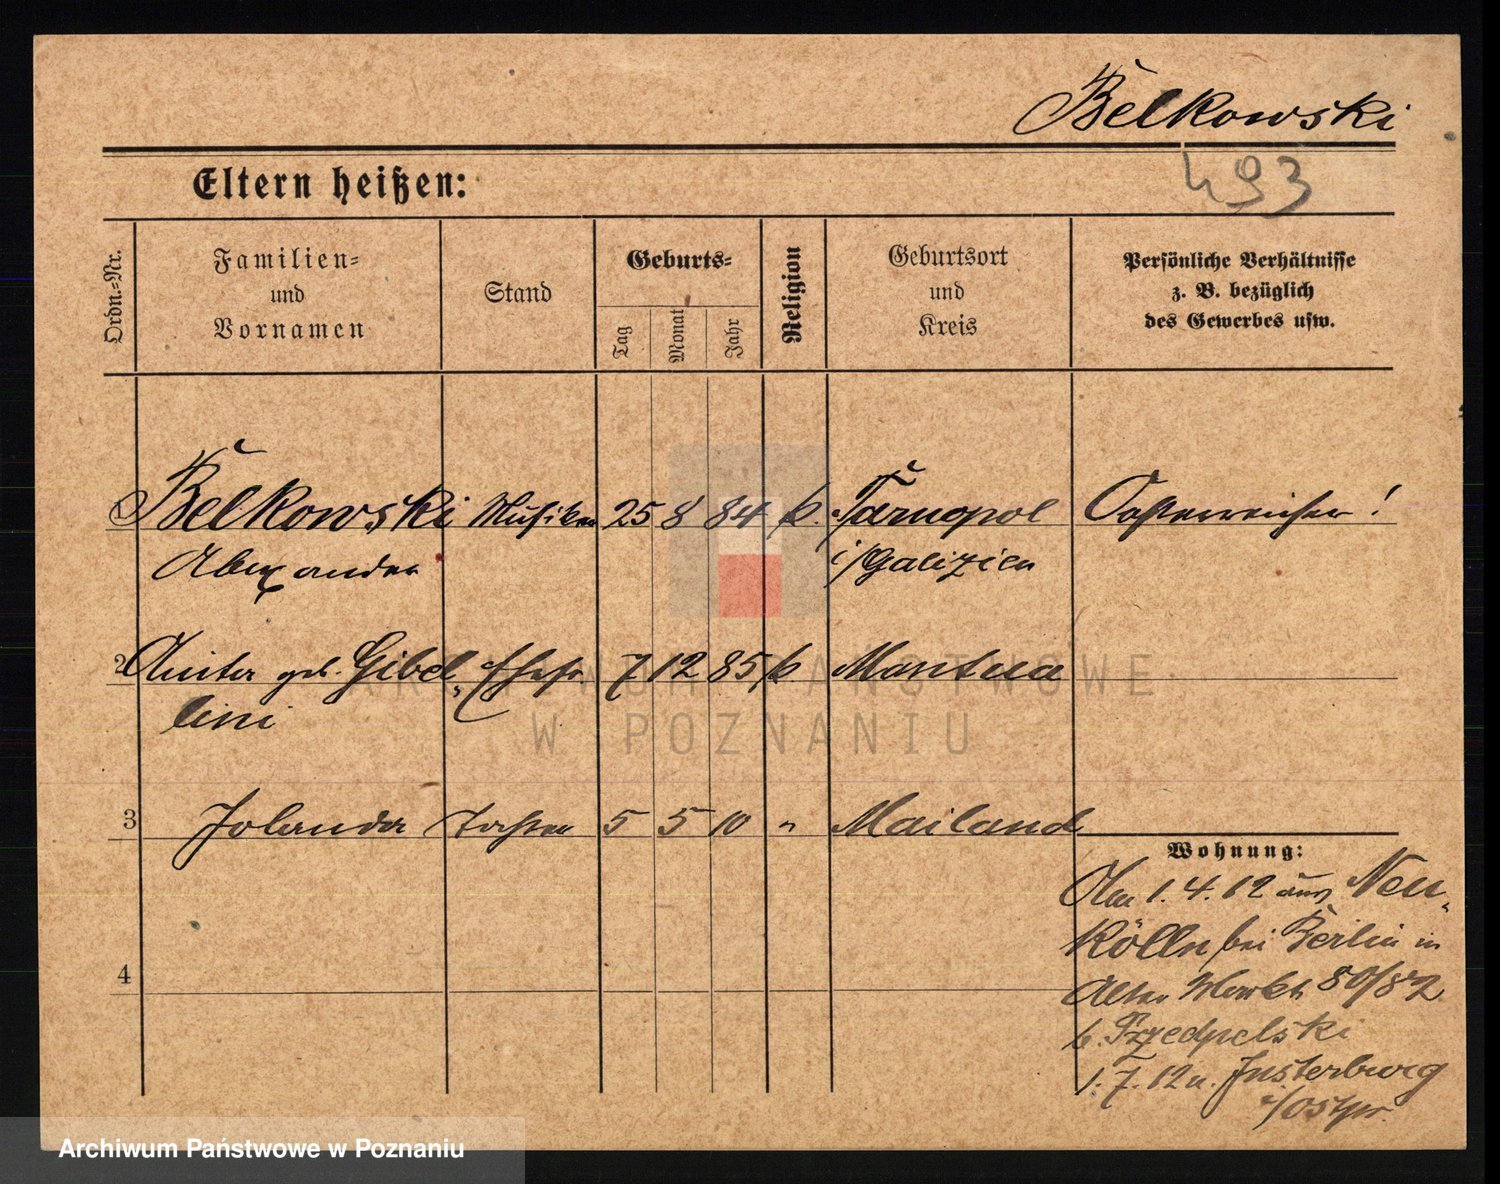 Belkowski
493
Eltern heißen:
Ordn.-Nr.
Familien-
und
Vornamen
Stand
Geburts-
Tag
Monat
Jahr
Religion
Geburtsort
und
Kreis
Persönliche Verhältnisse
z. B. bezüglich
des Gewerbes usw.
1 Belkowski Musiker 25 8 84 k. Tarnopol Oesterreicher!
Alexander i/Galizien
2 Anita geb. Gibel- Ehefr 7 12 85 k Mantua
lini
3 Jolanda Tochter 5 5 10 " Mailand
4
Wohnung:
Am 1.4.12 aus Neu-
kölln bei Berlin in
Alter Markt 80/82
b.
1.7.12 n. Insterburg
i/Ostpr.
ARCHIWUM PAŃSTWOWE
W POZNANIU
Archiwum Państwowe w Poznaniu